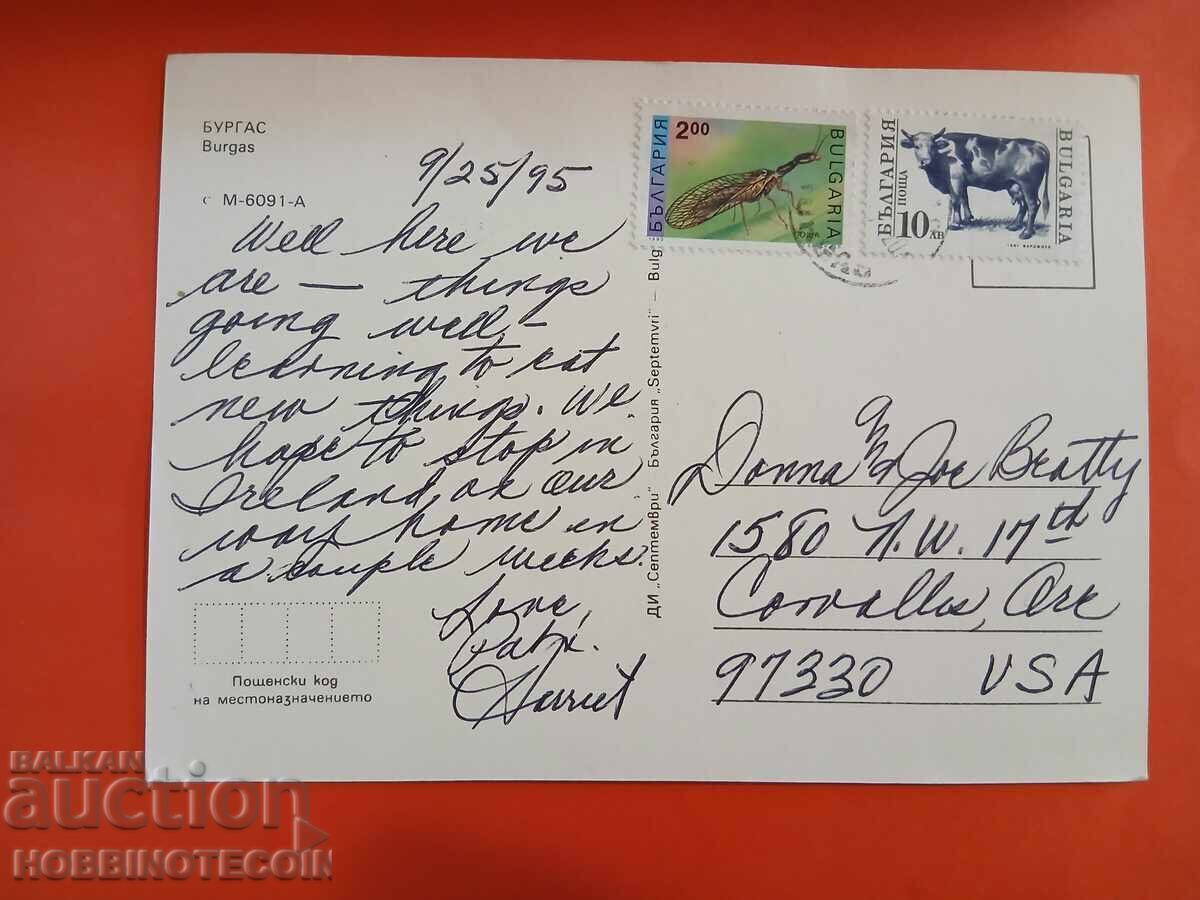 БУРГАС
Burgas
М-6091-А
9/25/95
Well here we
are — things
going well –
learning to eat
new things. We
hope to stop in
Ireland, on our
way home in
a couple weeks.
Love,
ДИ „Септември" България „Septemvri" – Bulg
БЪЛГАРИЯ
2.00
BULGARIA
ПОЩА
БЪЛГАРИЯ
ПОЩА
10 ЛВ
BULGARIA
Donna & Joe Beatty
1580 N.W. 17th
Corvallis, Ore
97330 USA
Пощенски код
на местоназначението
BALKAN
auction
HOBBINOTECOIN